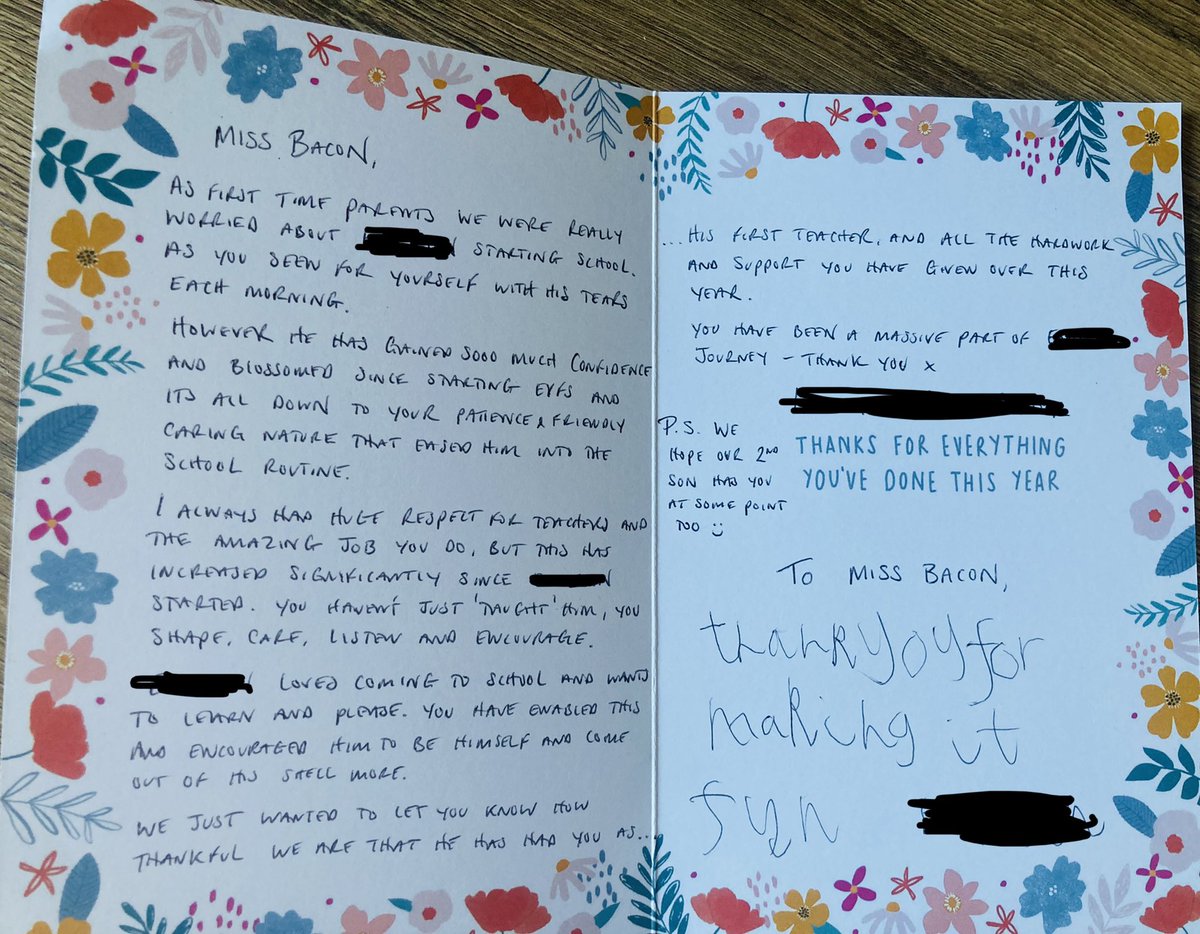 MISS BACON,
AS FIRST TIME PARENTS WE WERE REALLY
WORRIED ABOUT STARTING SCHOOL.
AS YOU SEEN FOR YOURSELF WITH HIS TEARS
EACH MORNING.
HOWEVER HE HAS GAINED SOOO MUCH CONFIDENCE
AND BLOSSOMED SINCE STARTING EYFS AND
ITS ALL DOWN TO YOUR PATIENCE & FRIENDLY
CARING NATURE THAT EASED HIM INTO THE
SCHOOL ROUTINE.
I ALWAYS HAD HUGE RESPECT FOR TEACHERS AND
THE AMAZING JOB YOU DO, BUT THIS HAS
INCREASED SIGNIFICANTLY SINCE
STARTED. YOU HAVEN'T JUST 'TAUGHT' HIM, YOU
SHAPE, CARE, LISTEN AND ENCOURAGE.
LOVED COMING TO SCHOOL AND WANTS
TO LEARN AND PLEASE. YOU HAVE ENABLED THIS
AND ENCOURAGED HIM TO BE HIMSELF AND COME
OUT OF HIS SHELL MORE.
WE JUST WANTED TO LET YOU KNOW HOW
THANKFUL WE ARE THAT HE HAS HAD YOU AS...
...HIS FIRST TEACHER, AND ALL THE HARDWORK
AND SUPPORT YOU HAVE GIVEN OVER THIS
YEAR.
YOU HAVE BEEN A MASSIVE PART OF
JOURNEY - THANK YOU x
P.S. WE
HOPE OUR 2ND
SON HAS YOU
AT SOME POINT
TOO :)
THANKS FOR EVERYTHING
YOU'VE DONE THIS YEAR
TO MISS BACON,
thankyoyfor
making it
fyn